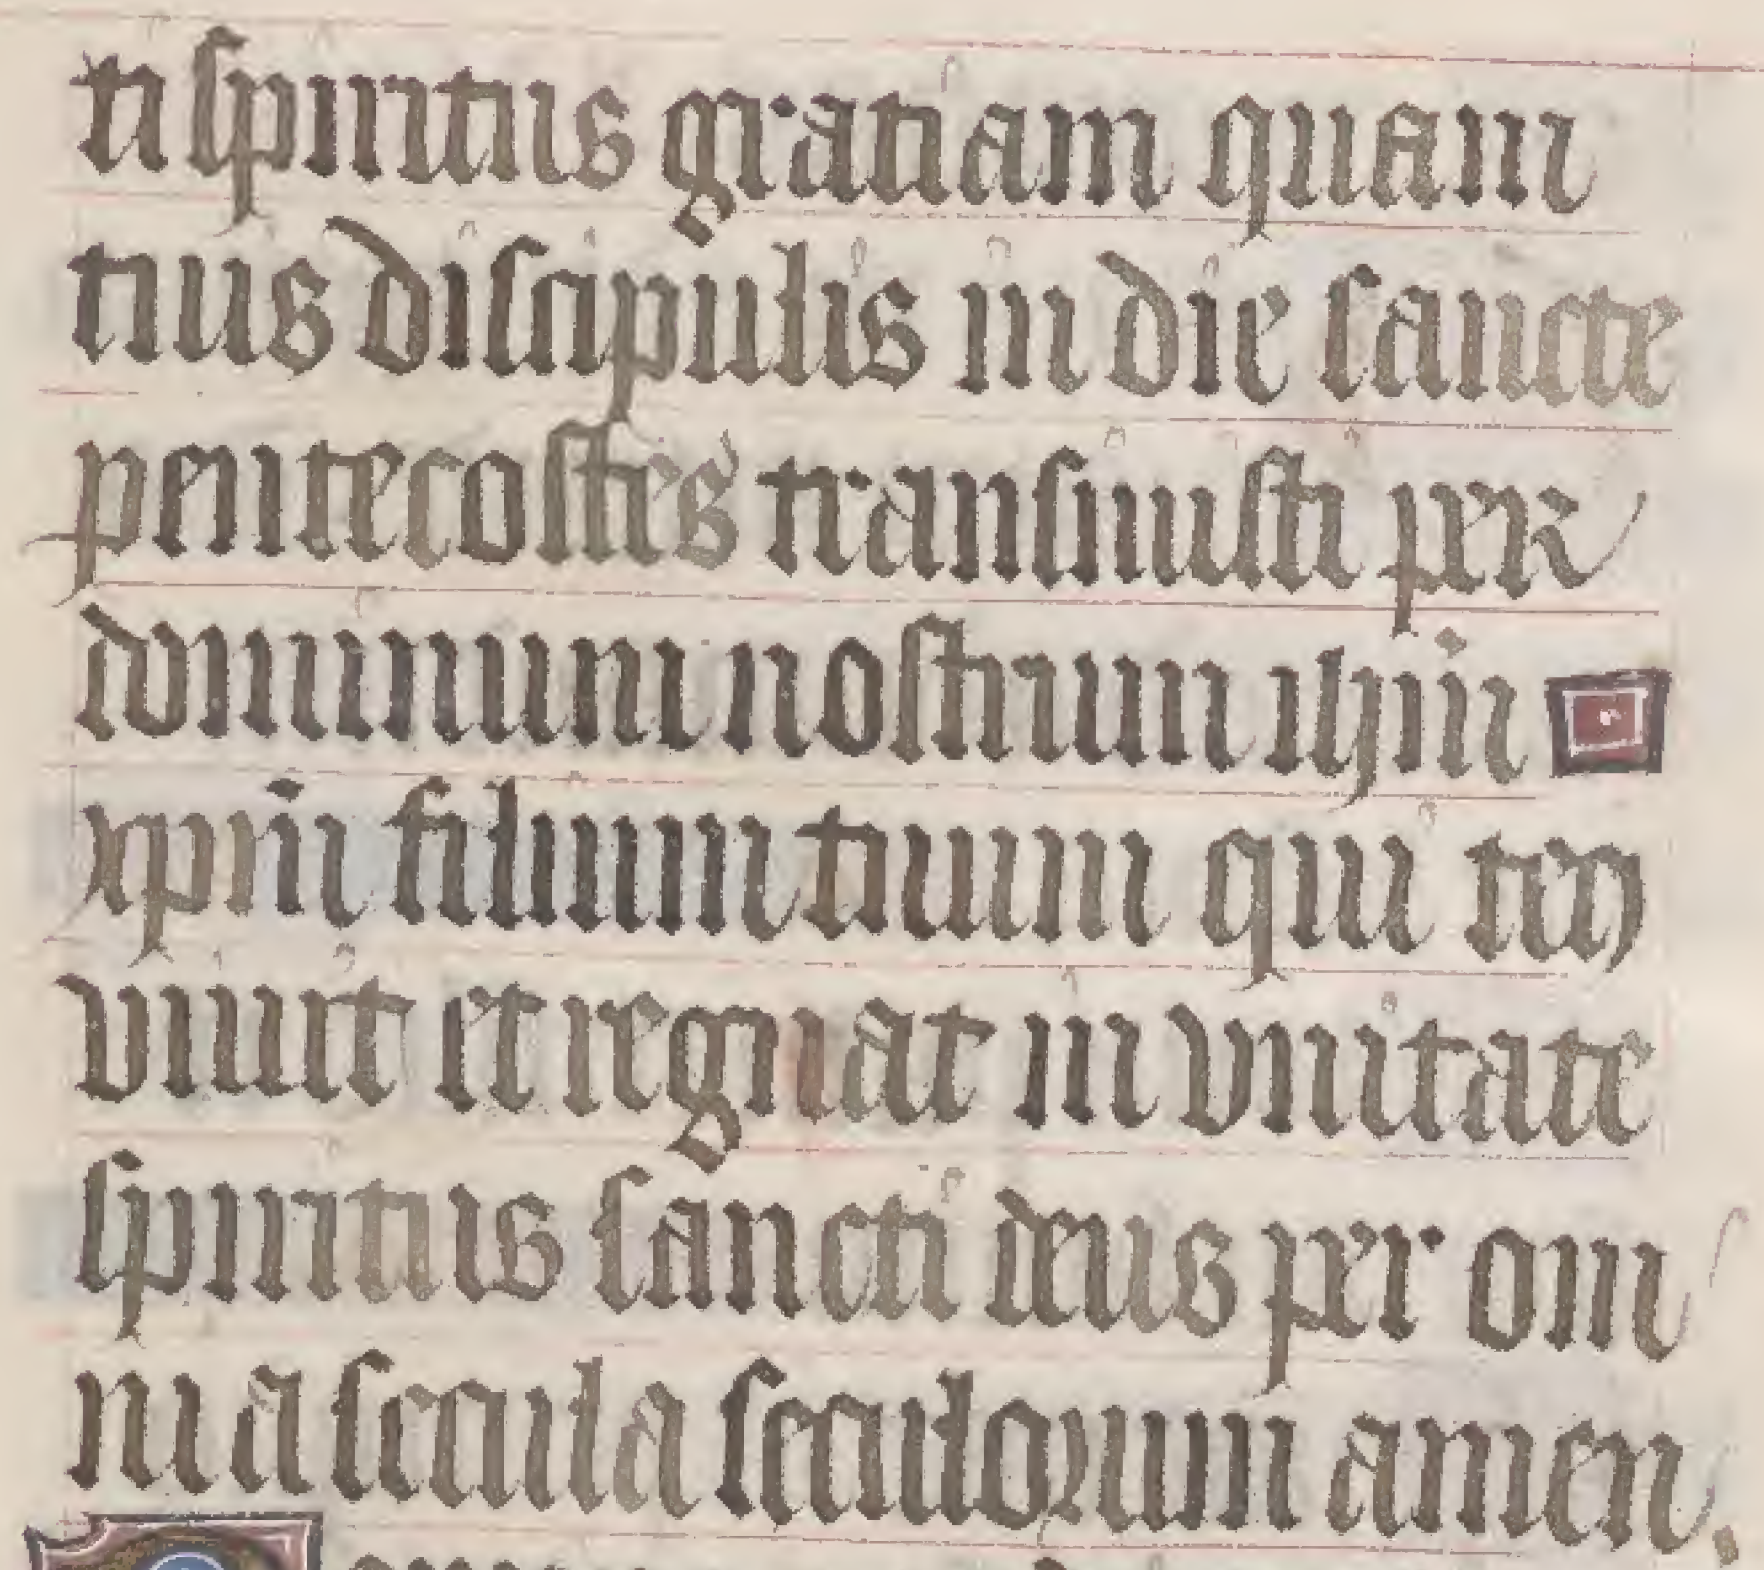 ti spiritus gratiam quam
tuis discipulis in die sancte
pentecostis transmisti per
dominum nostrum ihm̄
xpm̄ filium tuum qui tecꝫ
viuit et regnat in vnitate
spiritus sancti deus per om
nia secula seculorum amen.